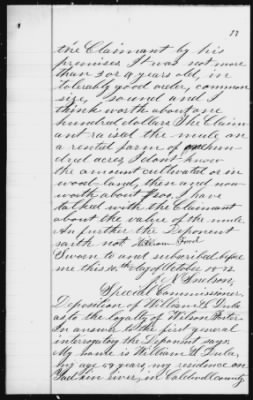 the Claimant by his
premises It was not more
than 3 or 4 years old, in
tolerably good order, common
size, sound and I
think worth about one
hundred dollars The Claim
ant raised the mule on
a rented farm of one hun
dred acres, I dont know
the amount cultivated or in
wood land, then and now
worth about I have
talked with the Claimant
about the value of the mule
An further the Deponent
saith not Ford
Sworn to and subscribed before
me this day of October 1872
Special Commissioner,
Deposition of William L Dula
as to the loyalty of Wilson Foster
In answer to the first general
interrogatory the Deponent says
My name is William L Dula,
my age years, my residence on
Yadkin river, in Caldwell county